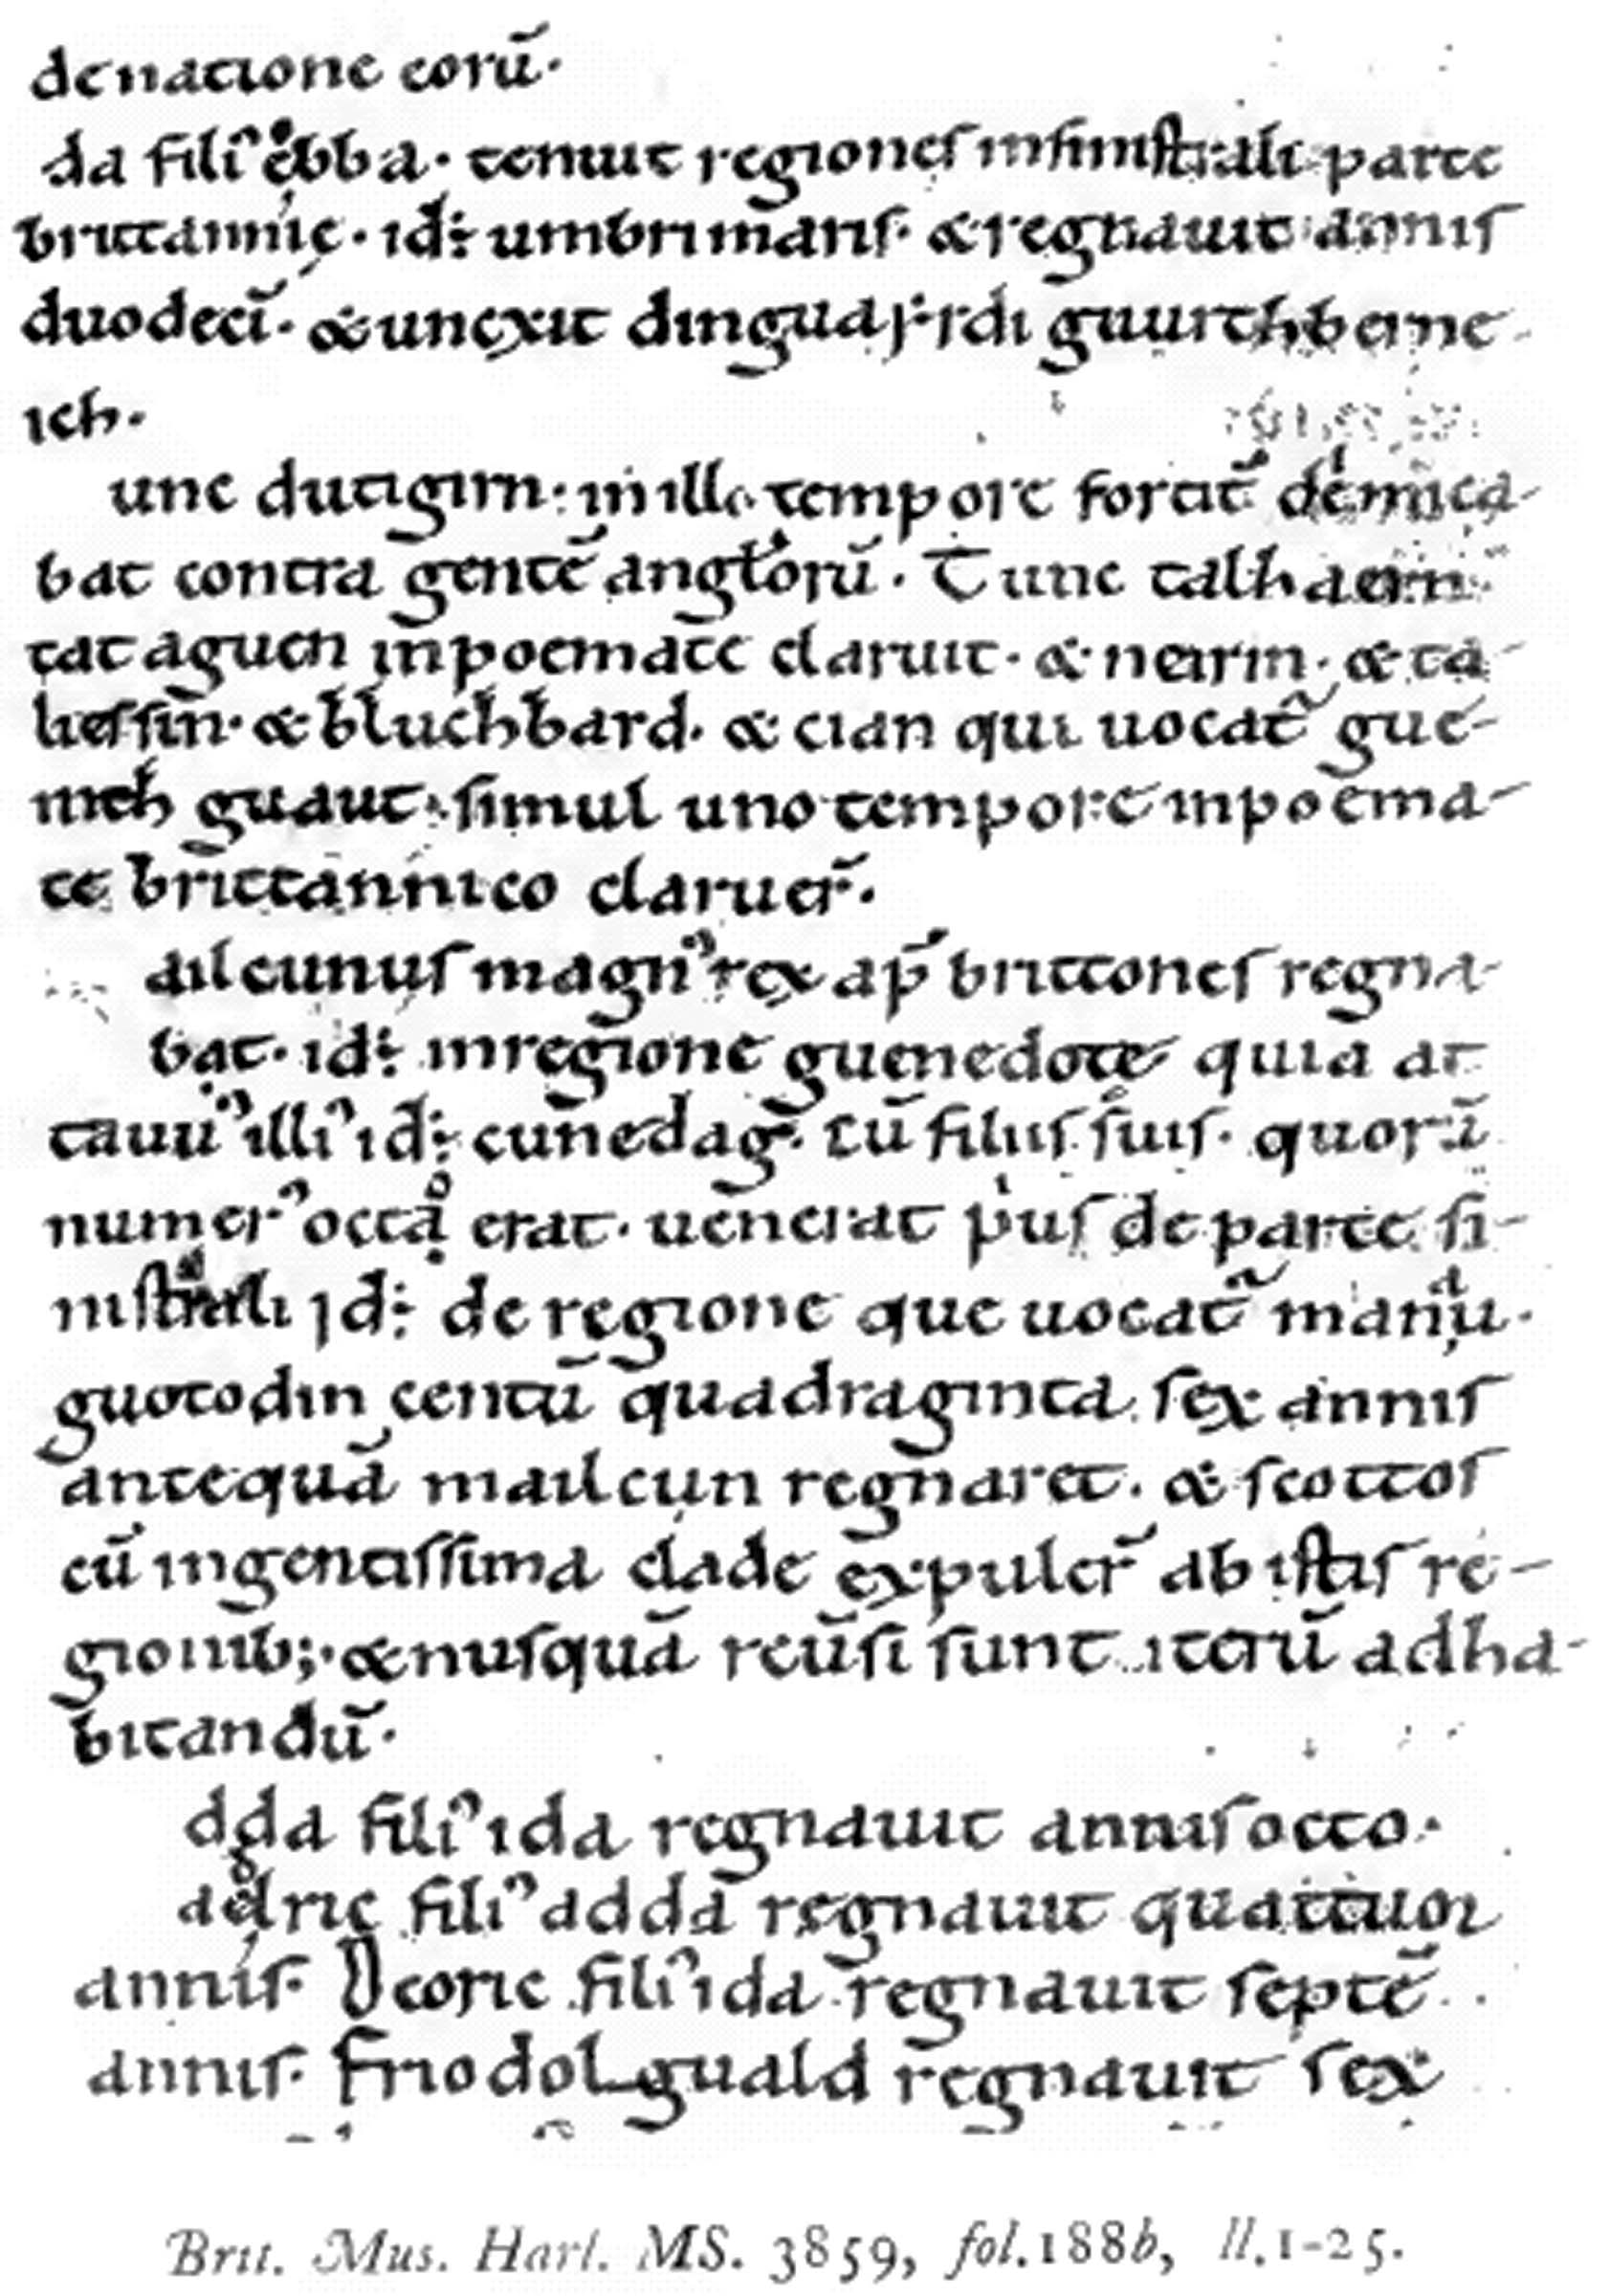 denatione eorū·
da fili᾽ ebba· tenuit regiones insinistrali parte
brittannię· id÷ umbri maris· & regnauit annis
duodecī· & unexit dinguaɼ÷rdi guurthberne
ich·
unc dutigirn· in illo tempore fortit̄ dimica-
bat contra gentē anglorū· Tunc talhaern
tataguen inpoemate claruit· & neirin· & ta-
liessin· & bluchbard· & cian qui uocat̄ gue-
nith guaut· simul uno tempore inpoema-
te brittannico claruer̄·
ailcunus magn᾽ rex ap̄ brittones regna-
bat· id÷ inregione guenedote quia at
tauu᾽ illi᾽ id÷ cunedag· cū filiis suis· quorū
numer᾽ octo erat· uenerat pˈus de parte si-
nistrali id÷ de regione que uocat̄ manau·
guotodin centū quadraginta sex annis
antequā mailcun regnaret· & scottos
cū ingentissima clade expuler̄ ab istis re-
gionib;· & nusquā reūsi sunt iterū adha-
bitandū·
dda fili᾽ ida regnauit annis octo·
aedlric fili᾽ adda regnauit quattuor
annis· Deoric fili᾽ ida regnauit septē
annis· Friodolguald regnauit sex
Brit. Mus. Harl. MS. 3859, fol. 188b, ll. 1-25.